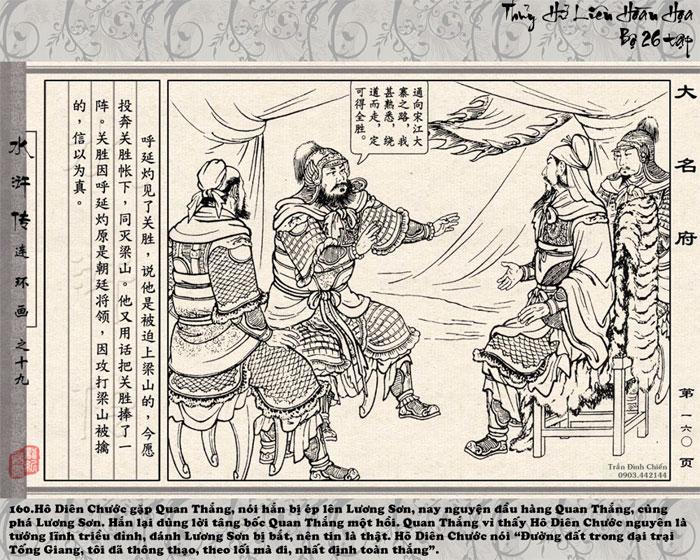 Thủy Hử Liên Hoàn Họa
Bộ 26 tập
大名府
第一六〇页
通向宋江大
寨之路，我
甚熟悉，绕
道而走，定
可得全胜。
呼延灼见了关胜，说他是被迫上梁山的，今愿
投奔关胜帐下，同灭梁山。他又用话把关胜捧了一
阵。关胜因呼延灼原是朝廷将领，因攻打梁山被擒
的，信以为真。
水浒传连环画之十九
Trần Đình Chiến
0903.442144
160.Hô Diên Chước gặp Quan Thắng, nói hắn bị ép lên Lương Sơn, nay nguyện đầu hàng Quan Thắng, cùng
phá Lương Sơn. Hắn lại dùng lời tâng bốc Quan Thắng một hồi. Quan Thắng vì thấy Hô Diên Chước nguyên là
tướng lĩnh triều đình, đánh Lương Sơn bị bắt, nên tin là thật. Hô Diên Chước nói “Đường đất trong đại trại
Tống Giang, tôi đã thông thạo, theo lối mà đi, nhất định toàn thắng”.